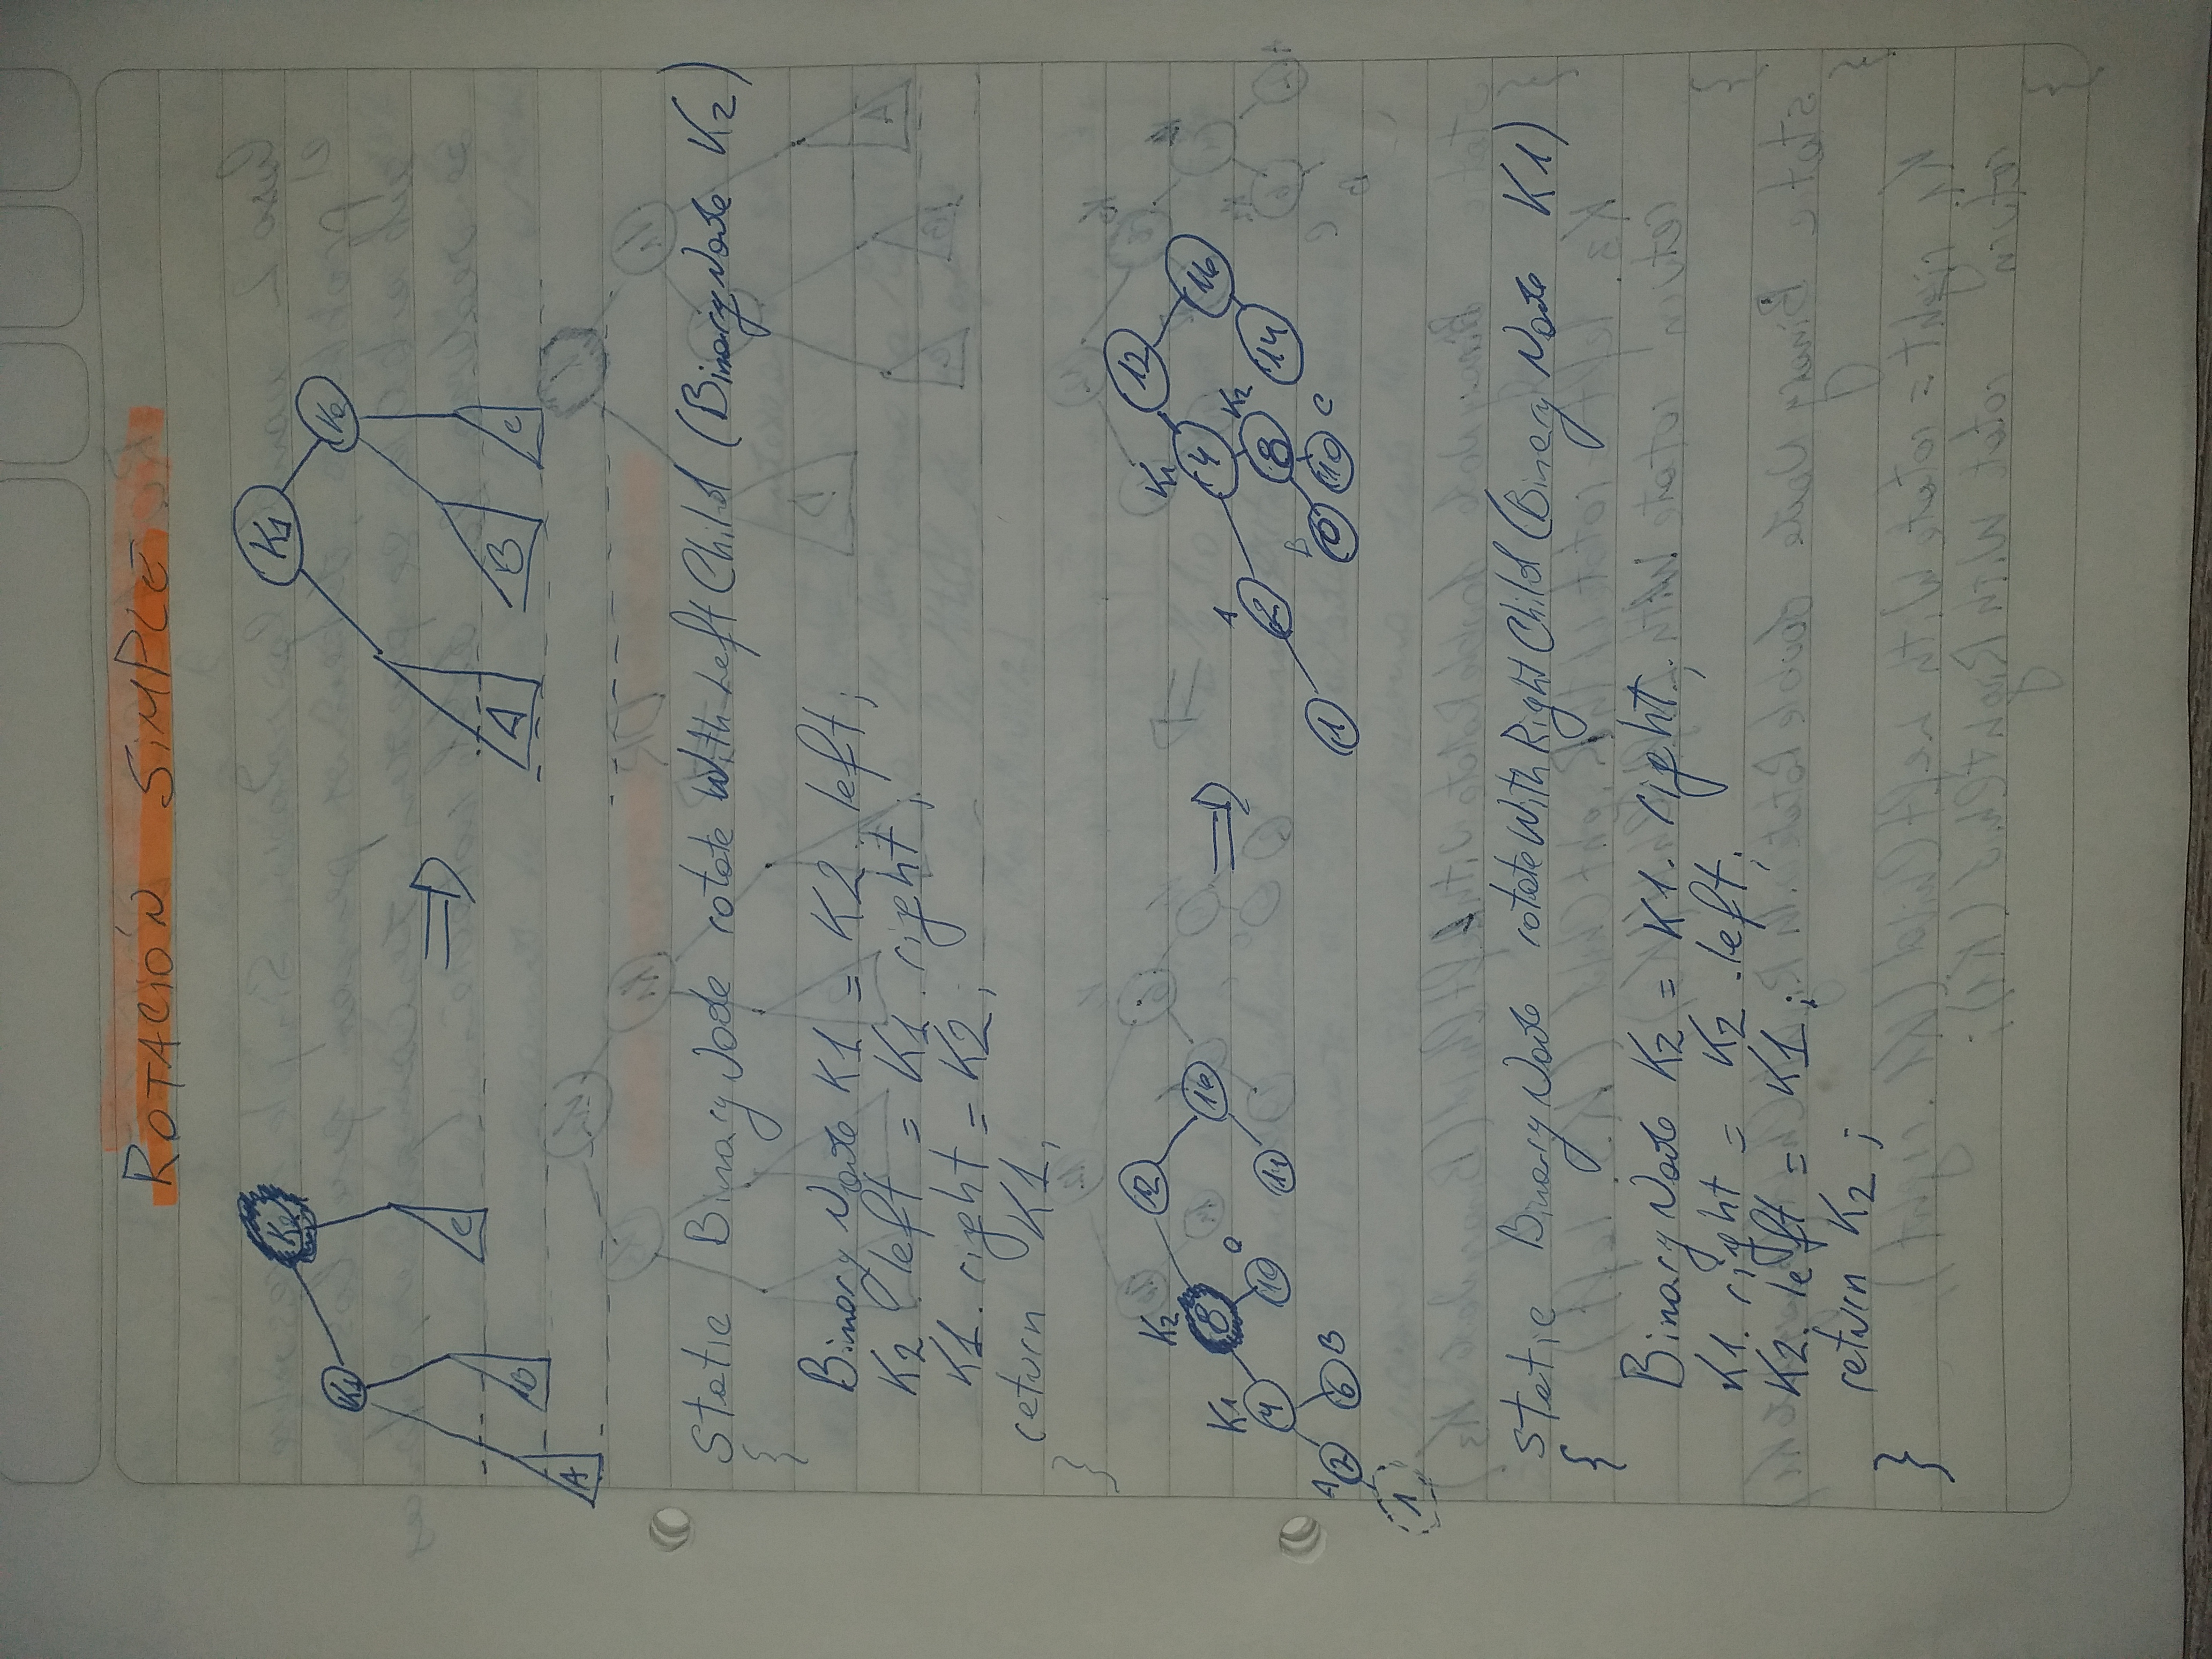 ROTACIÓN SIMPLE
K2 K1
K1 K2
C
A B C
B
A
static BinaryNode rotateWithLeftChild (BinaryNode K2)
{
BinaryNode K1 = K2.left;
K2.left = K1.right;
K1.right = K2;
return K1;
}
12 12
K2 K1
8 16 4 16
K1 C A K2
4 10 14 2 8 14
A 2 6 B 1 B 6 10 C
1
static BinaryNode rotateWithRightChild (BinaryNode K1)
{
BinaryNode K2 = K1.right;
K1.right = K2.left;
K2.left = K1;
return K2;
}